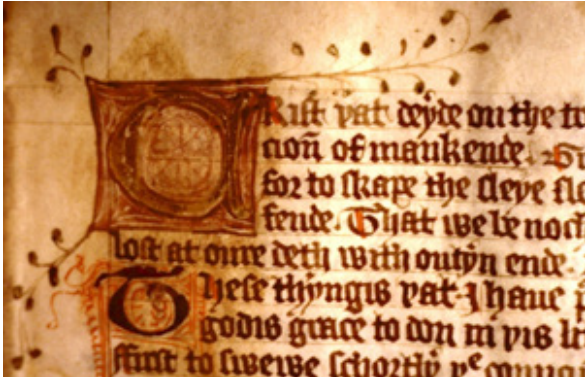 CRist þat deyde on the to
cioñ of mankende. 
for to skape the sleye sla
fende. That we be noct
lost at oure deth with outyn ende.
These thyngis þat I haue
godis grace to don in þis
ffirst to swewe schortly þe